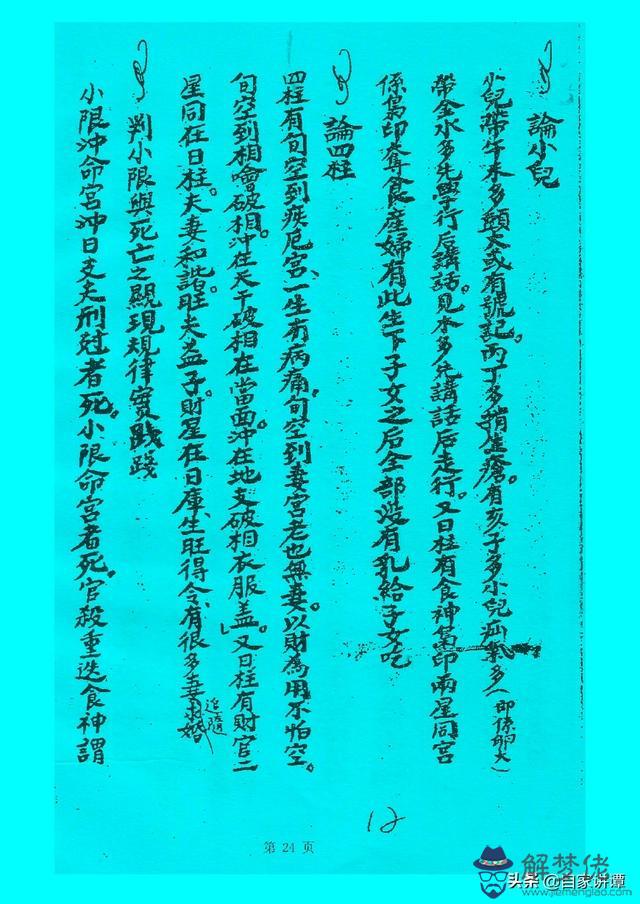 論小兒
小兒帶午未多頭大或有號記。丙丁多稍生瘡。有亥子多小兒疝氣多（即係卵大）
帶金水多先學行后講話。見木多先講話后走行。又日柱有食神梟印兩星同宮
係梟印奪食產婦有此生下子女之后全部沒有乳給子女吃
論四柱
四柱有旬空到疾厄宮、一生有病痛。旬空到妻宮老也無妻。以財為用不怕空。
旬空到相會破相。沖在天干破相在當面。沖在地支破相衣服蓋。又日柱有財官二
星同在日柱。夫妻和諧旺夫益子。財星在日庫、生旺得令、有很多妻追隨婚
判小限與死亡之顯現規律實踐踐
小限沖命宮沖日支夫刑尅者死。小限命宮者死。官殺重迭食神謂
12
第 24 页
解梦佬
www.jiemenglao.com
头条 @自家讲谭